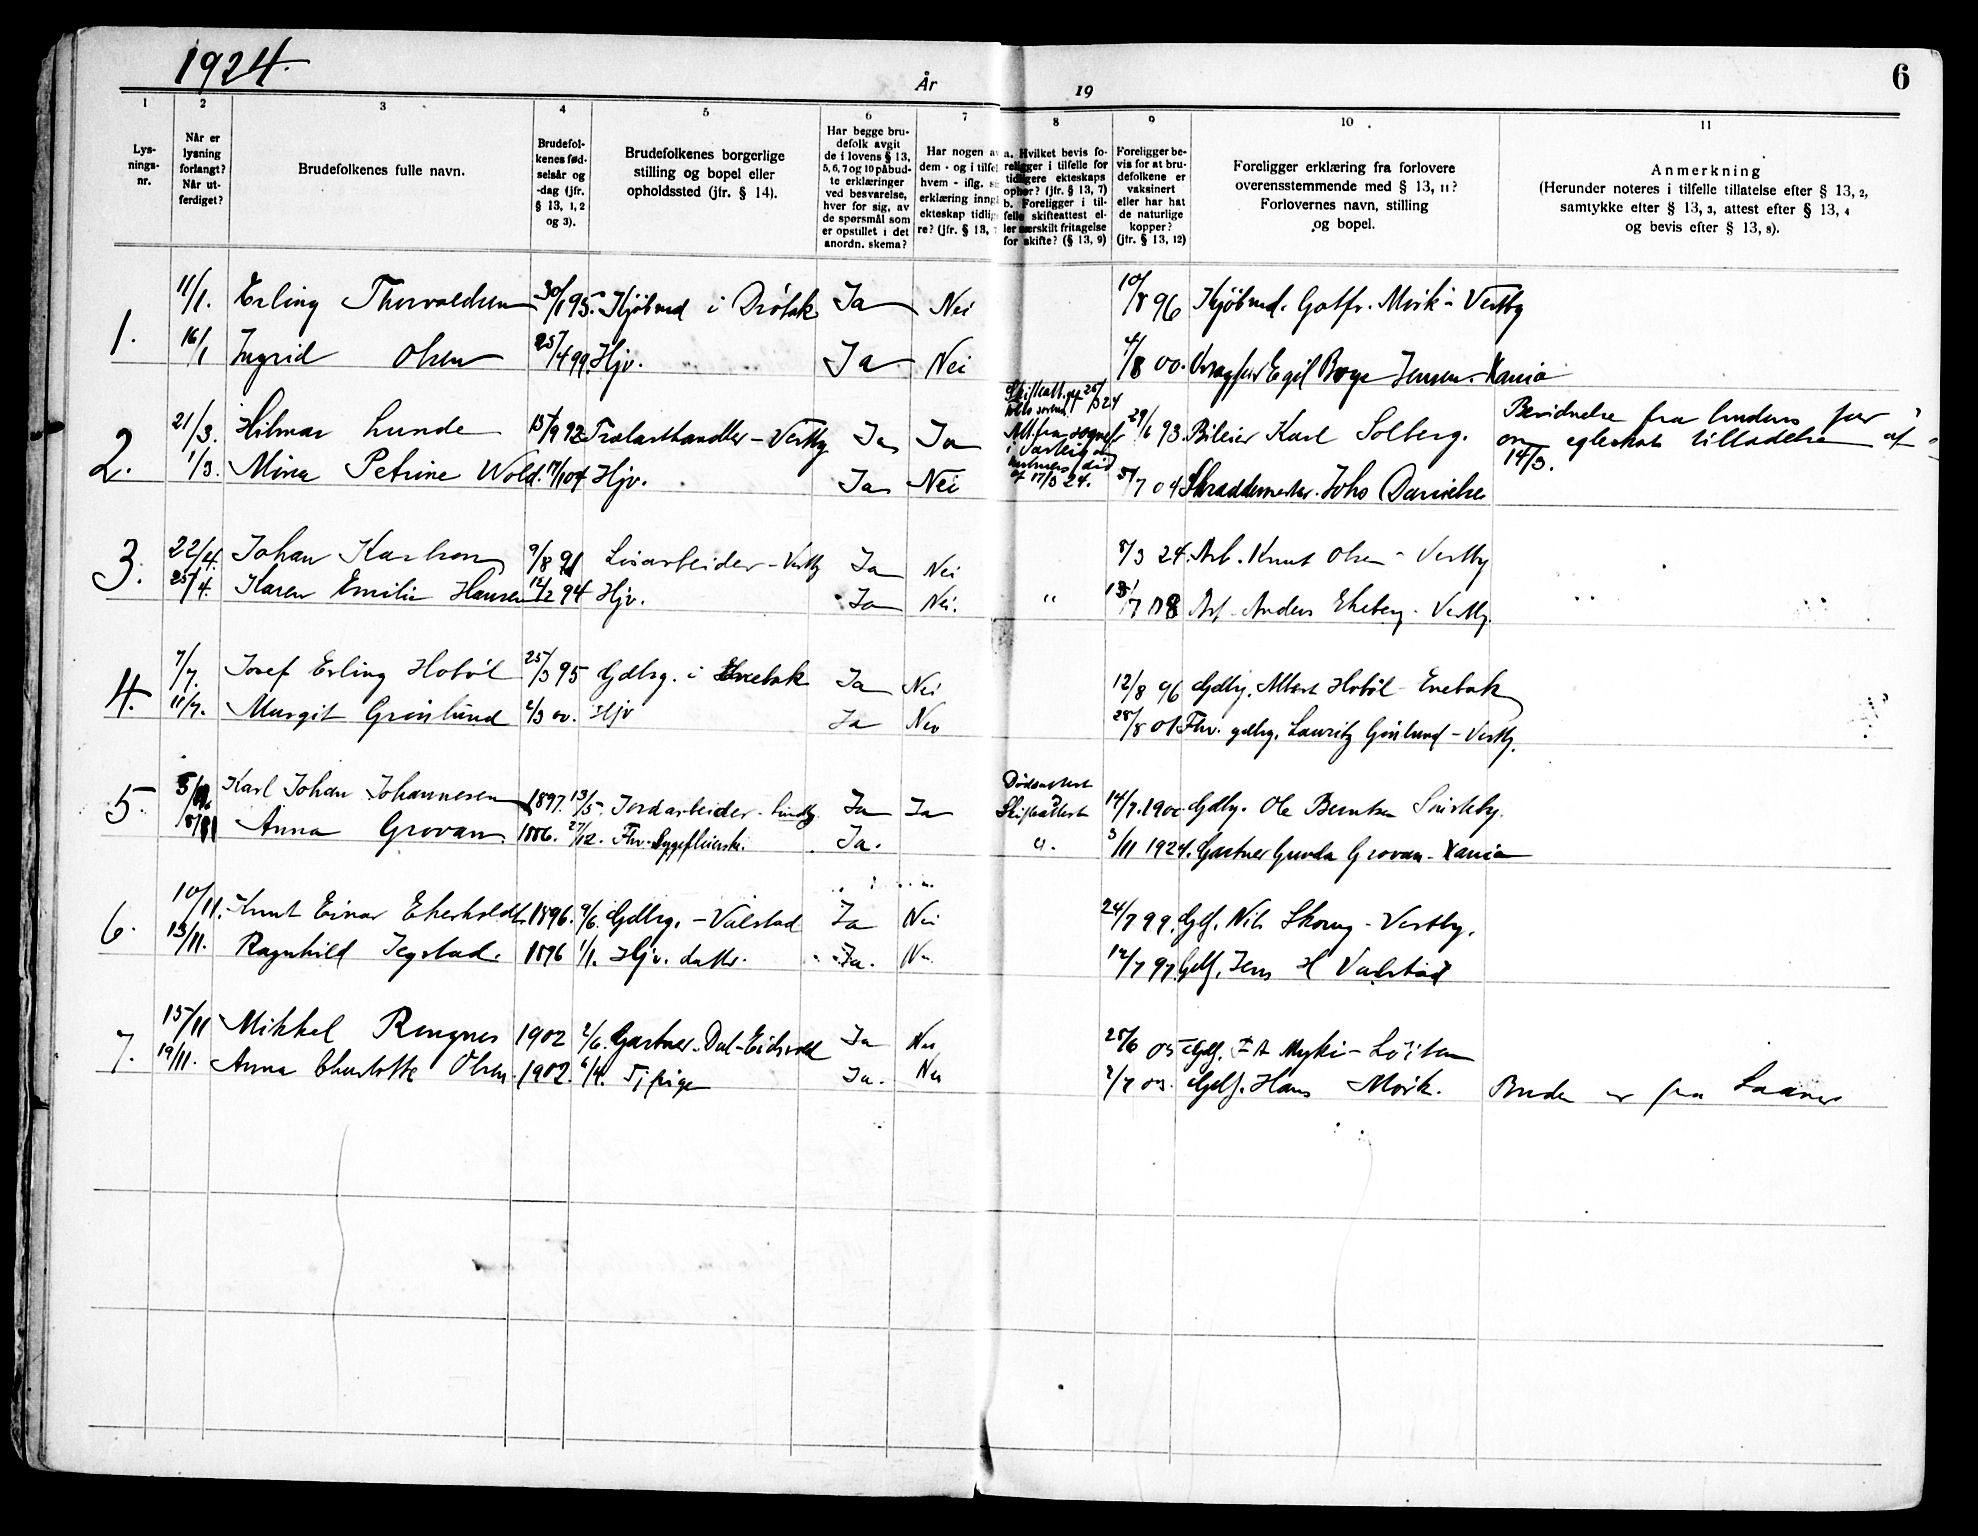 1924.
År
19
6
1 2 3 4 5 6 7 8 9 10 11
Lys-
nings-
nr.
Når er
lysning
forlangt?
Når ut-
ferdiget?
Brudefolkenes fulle navn.
Brudefol-
kenes fød-
selsår og
-dag (jfr.
§ 13, 1, 2
og 3).
Brudefolkenes borgerlige
stilling og bopel eller
opholdssted (jfr. § 14).
Har begge bru-
defolk avgit
de i lovens § 13,
5, 6, 7 og 10 påbud-
te erklæringer
ved besvarelse,
hver for sig, av
de spørsmål som
er opstillet i det
anordn. skema?
Har nogen a
dem - og i tilfel
hvem - iflg. s
erklæring inng
ekteskap tidlig
re? (jfr. § 13,
a. Hvilket bevis fo-
religger i tilfelle for
tidligere ekteskaps
ophør? (jfr. § 13, 7)
b. Foreligger i til-
felle skifteattest el-
ler særskilt fritagelse
for skifte? (§ 13, 9)
Foreligger be-
vis for at bru-
defolkene er
vaksinert
eller har hat
de naturlige
kopper?
(jfr. § 13, 12)
Foreligger erklæring fra forlovere
overensstemmende med § 13, 11?
Forlovernes navn, stilling
og bopel.
Anmerkning
(Herunder noteres i tilfelle tillatelse efter § 13, 2,
samtykke efter § 13, 3, attest efter § 13, 4
og bevis efter § 13, 8).
1. 11/1. Erling Thorvaldsen 30/1 95. Kjøbmd i Drøbak Ja Nei 10/8 96 Kjøbmd. Gotfr. Mørk - Vestby
16/1 Ingrid Olsen 25/4 99. Hjv. Ja Nei 4/8 00. Egil Jensen. Xania
2. 21/3. Hilmar Lunde 15/9 92 Trælasthandler - Vestby Ja Ja 29/6 93. Bileier Karl Solberg. fra
1/3. Mina Petrine Wold. 7/10 04 Hjv. Ja Nei af 17/3 24. 5/7 04 Skræddermester Johs Danielse
om tilladelse af
14/3.
3. 22/4. Johan Karlsen 9/8 91 - Vestby Ja Nei 8/3 24. Arb. Knut Olsen - Vestby
25/4. Karen Emilie Hansen 12/2 94 Hjv. Ja Nei. " Anders Ekeberg - Vestby.
4. 7/7. Josef Erling Hobøl 25/3 95 Gdbrg. i Enebak Ja Nei 12/8 96 Gdbrg. Albert Hobøl - Enebak
11/7. Margit Grønlund 2/3 00. Hjv Ja Nei 28/8 01. Fhv. gdbrg. Lauritz Grønlund - Vestby.
5. Karl Johan Johannesen 1897. 13/5. Jordarbeider. Ja Ja Dødsattest
Skifteattest 14/7. 1900 Gdbrg. Ole Berntsen
Anna Grovan 1886. 27/12. Fhv. Sygepleierske. Ja. " 3/11 1924. Gartner Gunda Grovan - Xania
6. 10/11. Knut Einar Ekerholdt. 1896. 9/6. Gdbrg. - Vålstad Ja Nei 24/7 99. Nils Skoug - Vestby.
13/11. Ragnhild Jegstad. 1896 1/1. Hjv. dattr. Ja. Nei 12/7 97. Jens H Valstad
7. 15/11 Mikkel Rengnes 1902 2/6. Gartner. Dal - Eidsvold Ja Nei 25/6 05 - Løiten
19/11. Anna Charlotte Olsen. 1902. 6/4. Tj. pige Ja. Nei 2/7 03. Hans Mørk. Bruden er fra Laaner